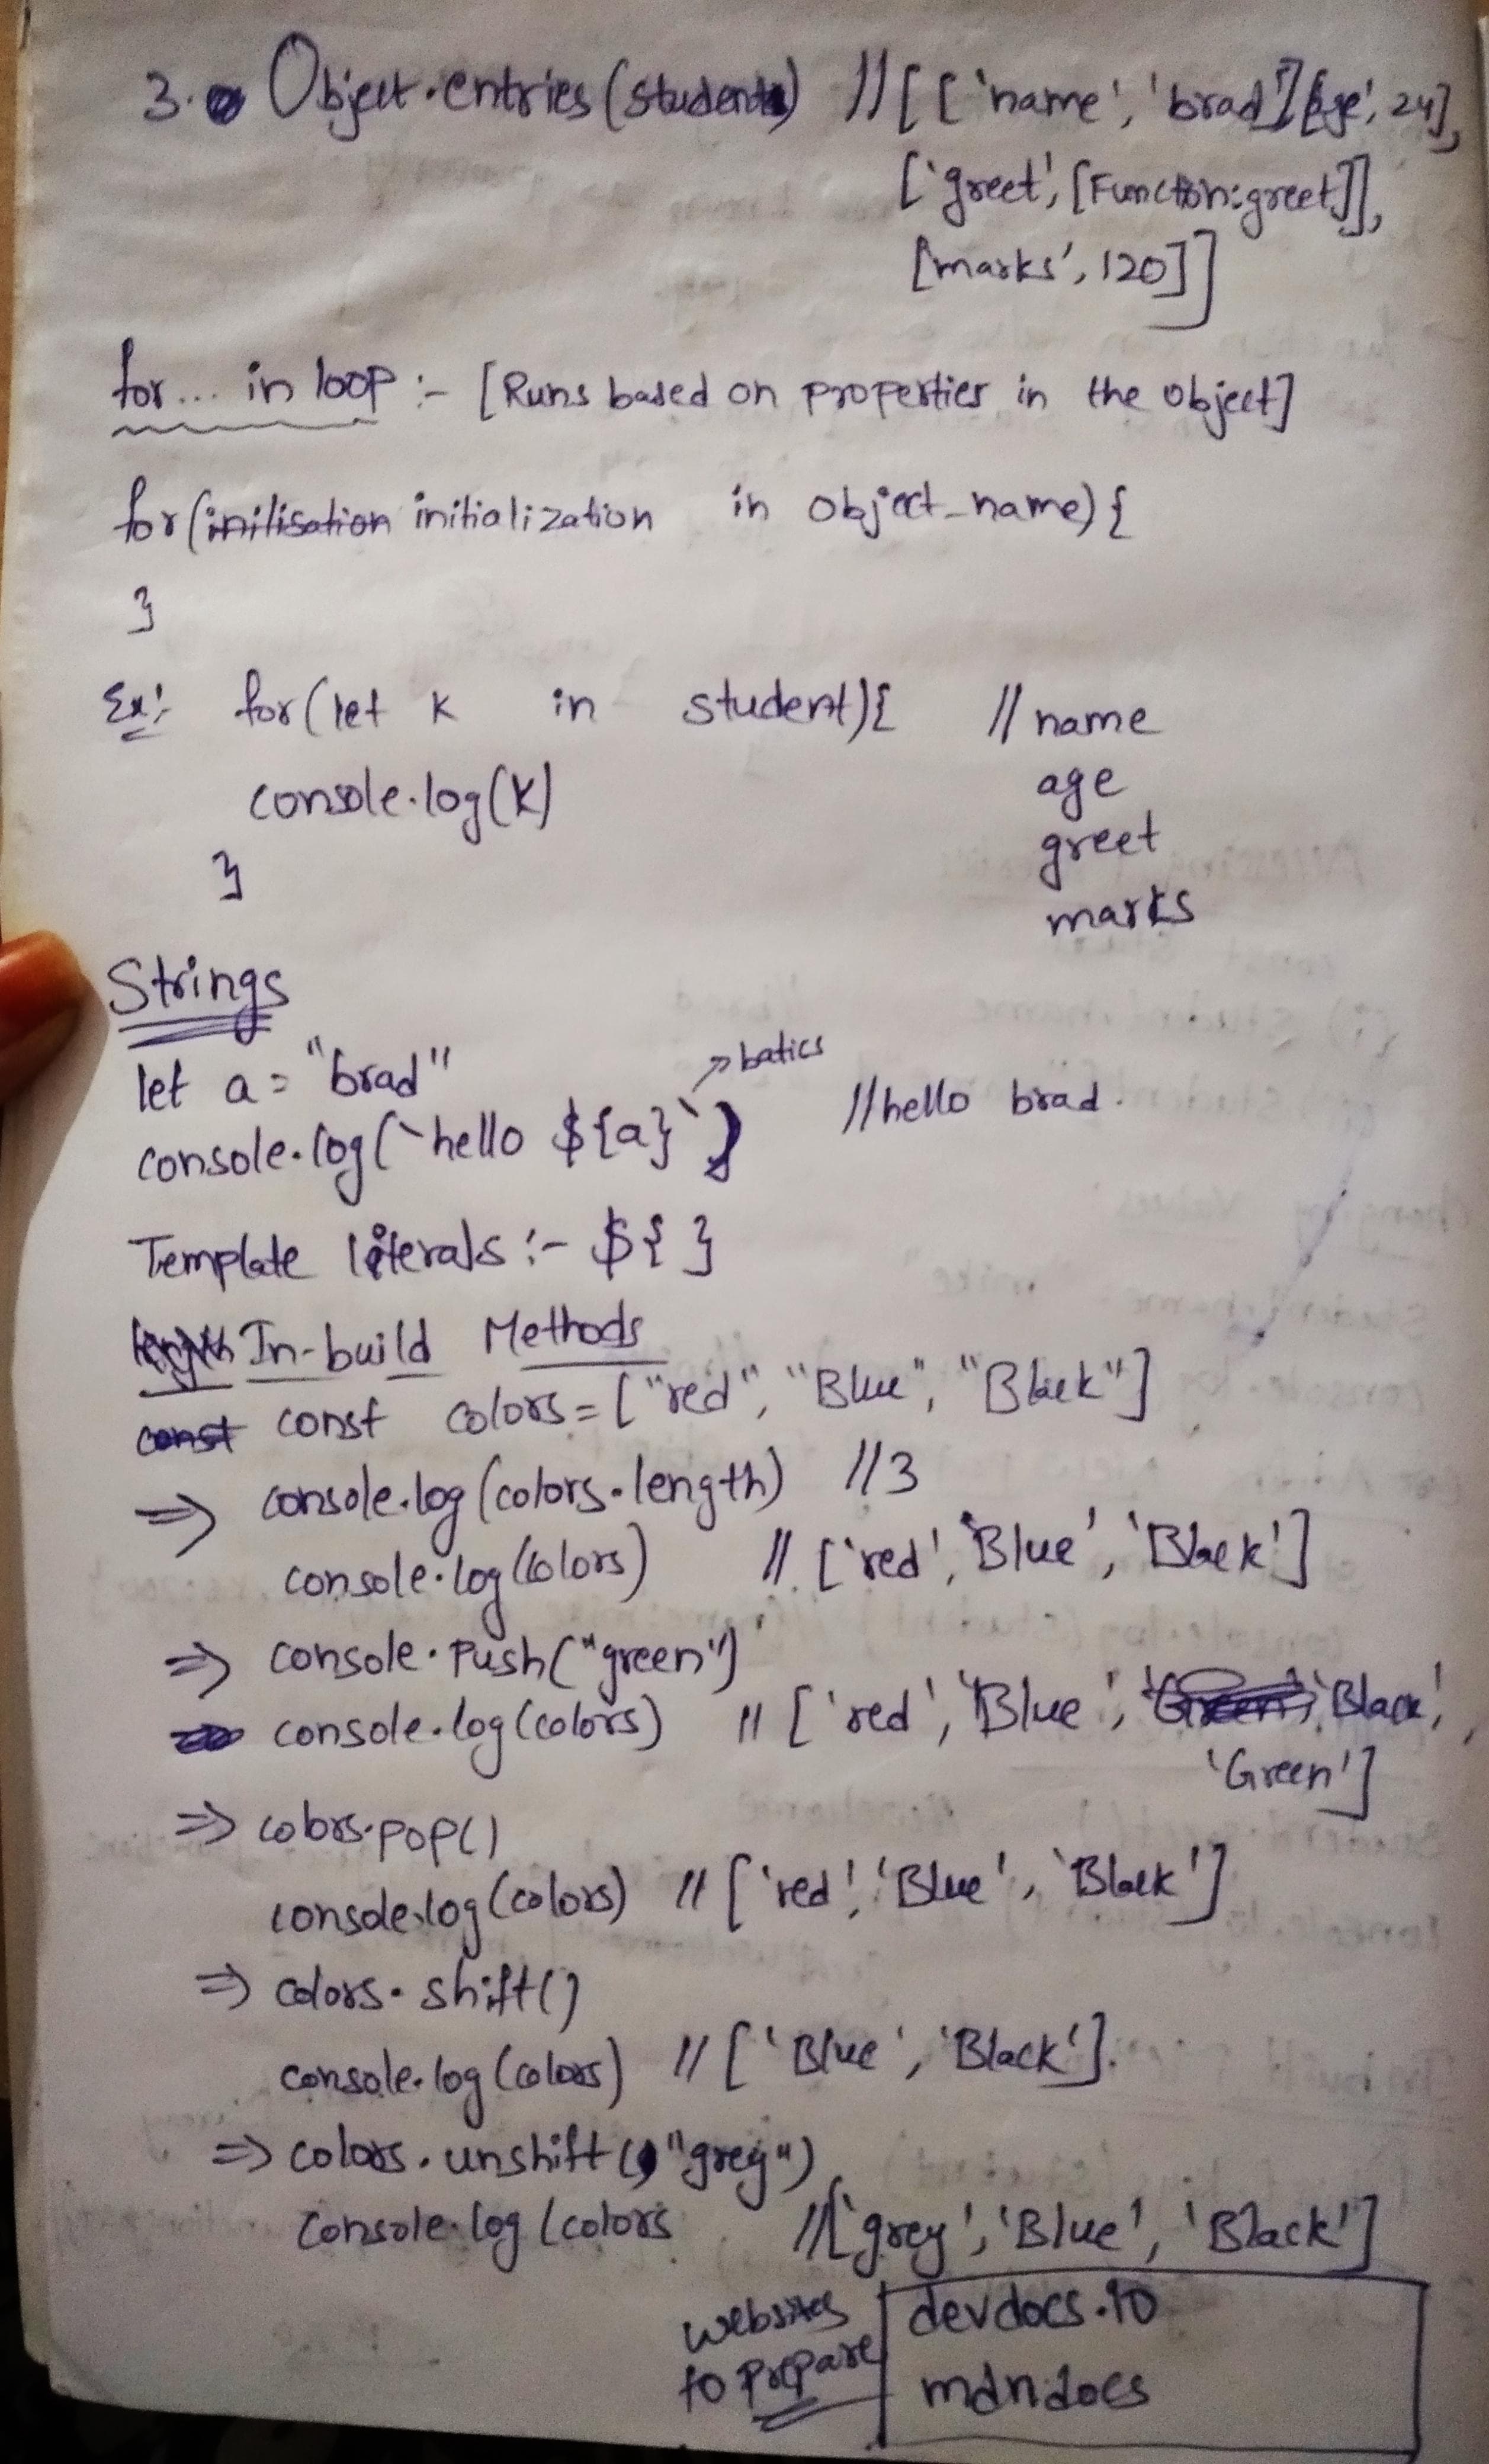 3. Object.entries(student) //[['name', 'brad'][age', 24],
['greet', [Function:greet]],
[marks', 120]]
for... in loop :- [Runs based on properties in the object]
for(inilisation initialization in object_name){
}
Ex:- for(let k in student){ //name
console.log(k) age
} greet
marks
Strings
let a = "brad" → batics
console.log(`hello ${a}`) //hello brad.
Template literals :- ${ }
length In-build Methods
const const colors = ["red", "Blue", "Black"]
⇒ console.log(colors.length) //3
console.log(colors) // ['red', 'Blue', 'Black']
⇒ console.push("green")
console.log(colors) // ['red', 'Blue', 'Green', 'Black',
'Green']
⇒ colors.pop()
console.log(colors) // ['red', 'Blue', 'Black']
⇒ colors.shift()
console.log(colors) // ['Blue', 'Black'].
⇒ colors.unshift("grey")
console.log(colors //['grey', 'Blue', 'Black']
websites devdocs.io
to prepare mdndocs